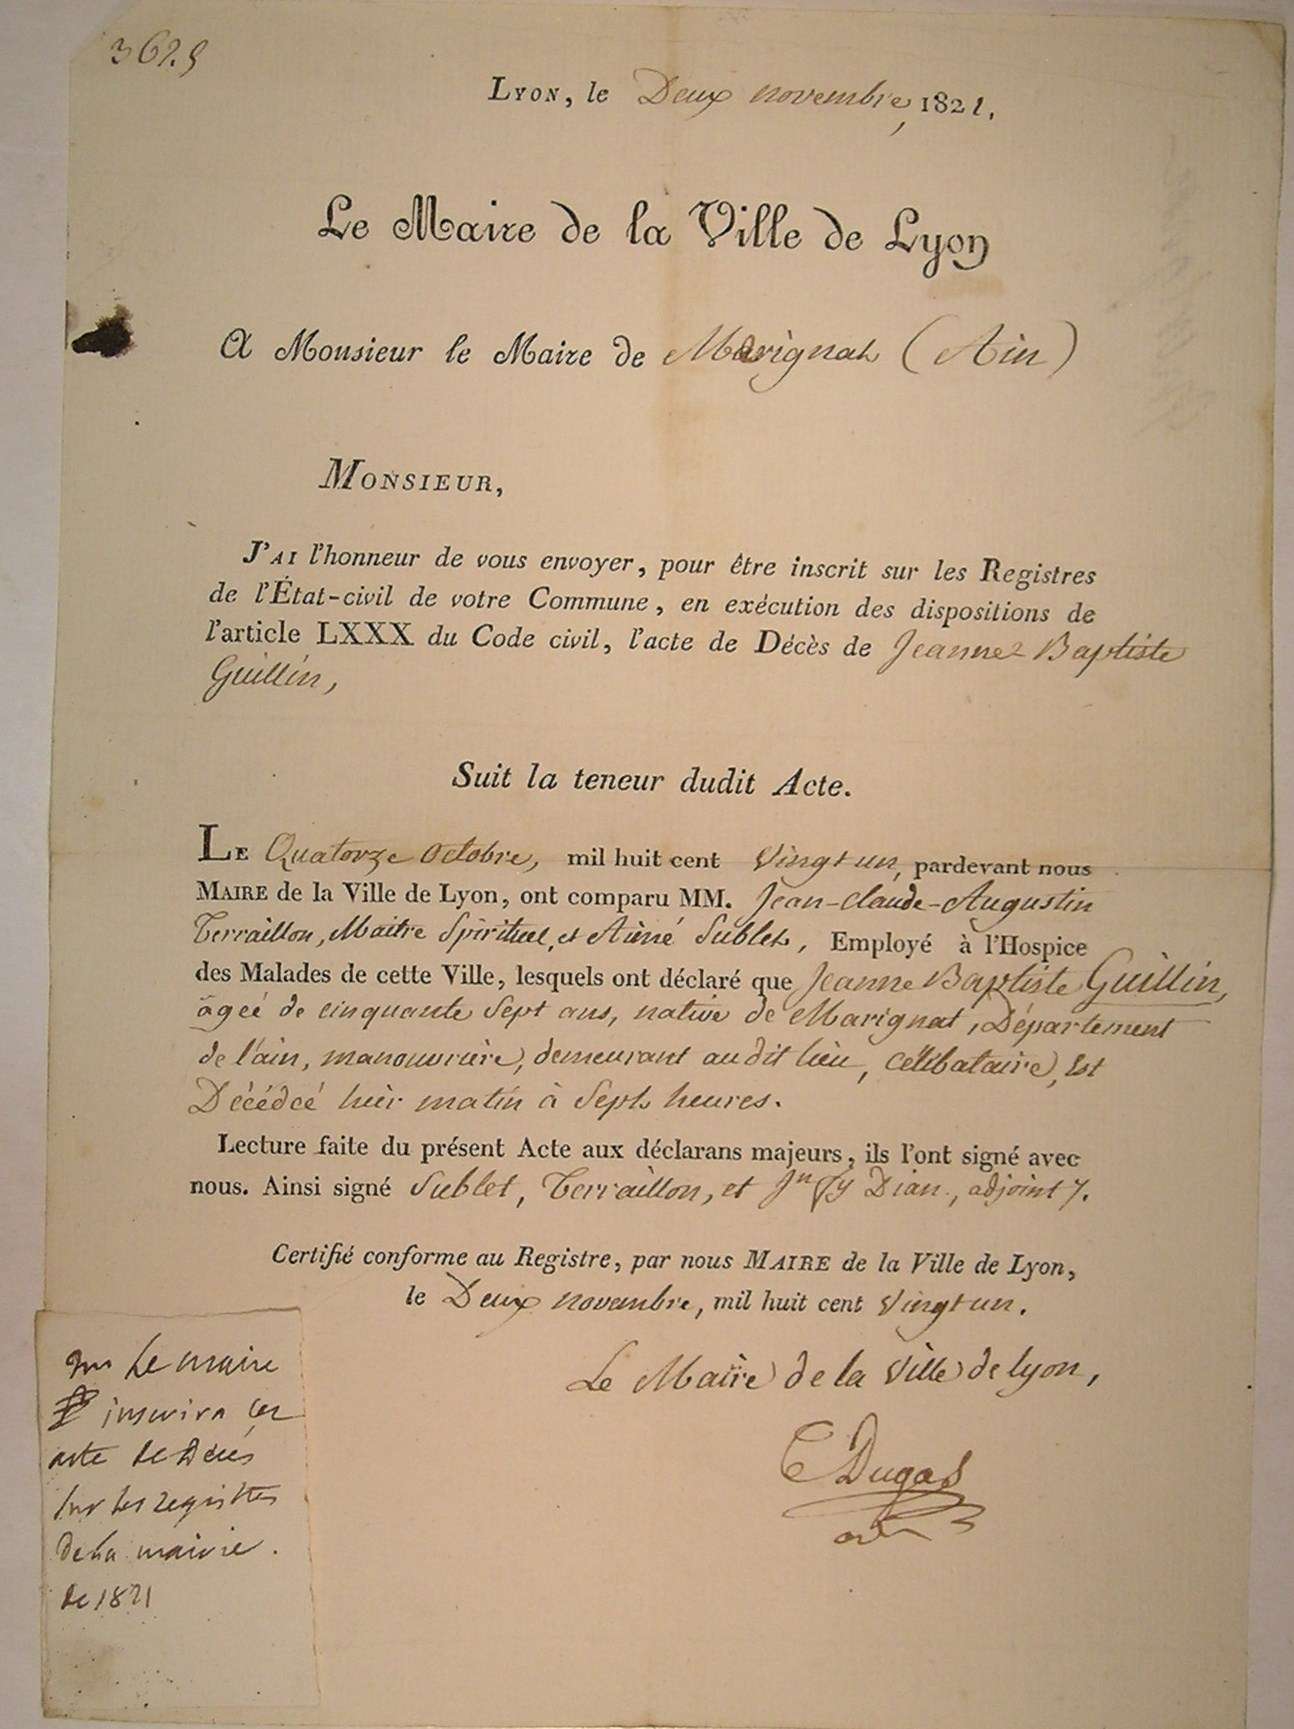 3625
Lyon, le Deux novembre, 1821.
Le Maire de la Ville de Lyon
A Monsieur le Maire de Marignat (Ain)
Monsieur,
J'ai l'honneur de vous envoyer, pour être inscrit sur les Registres
de l'État-civil de votre Commune, en exécution des dispositions de
l'article LXXX du Code civil, l'acte de Décès de Jeanne Baptiste
Guillin,
Suit la teneur dudit Acte.
Le Quatorze Octobre, mil huit cent Vingt un, pardevant nous
Maire de la Ville de Lyon, ont comparu MM. Jean-Claude-Augustin
Terraillon, Maitre Spirituel, et Aimé Sublet, Employé à l'Hospice
des Malades de cette Ville, lesquels ont déclaré que Jeanne Baptiste Guillin,
âgeé de cinquante Sept ans, native de Marignat, Département
de l'ain, manouvrière, demeurant au dit lieu, célibataire, Est
Décédeé hier matin à Sept heures.
Lecture faite du présent Acte aux déclarans majeurs, ils l'ont signé avec
nous. Ainsi signé Sublet, Terraillon, et Jn Dian, adjoint
Certifié conforme au Registre, par nous Maire de la Ville de Lyon,
le Deux novembre, mil huit cent Vingt un.
Le Maire de la Ville de lyon,
Dugas
Le maire
inscrira cet
acte de Décès
Sur les registres
de la mairie.
de 1821